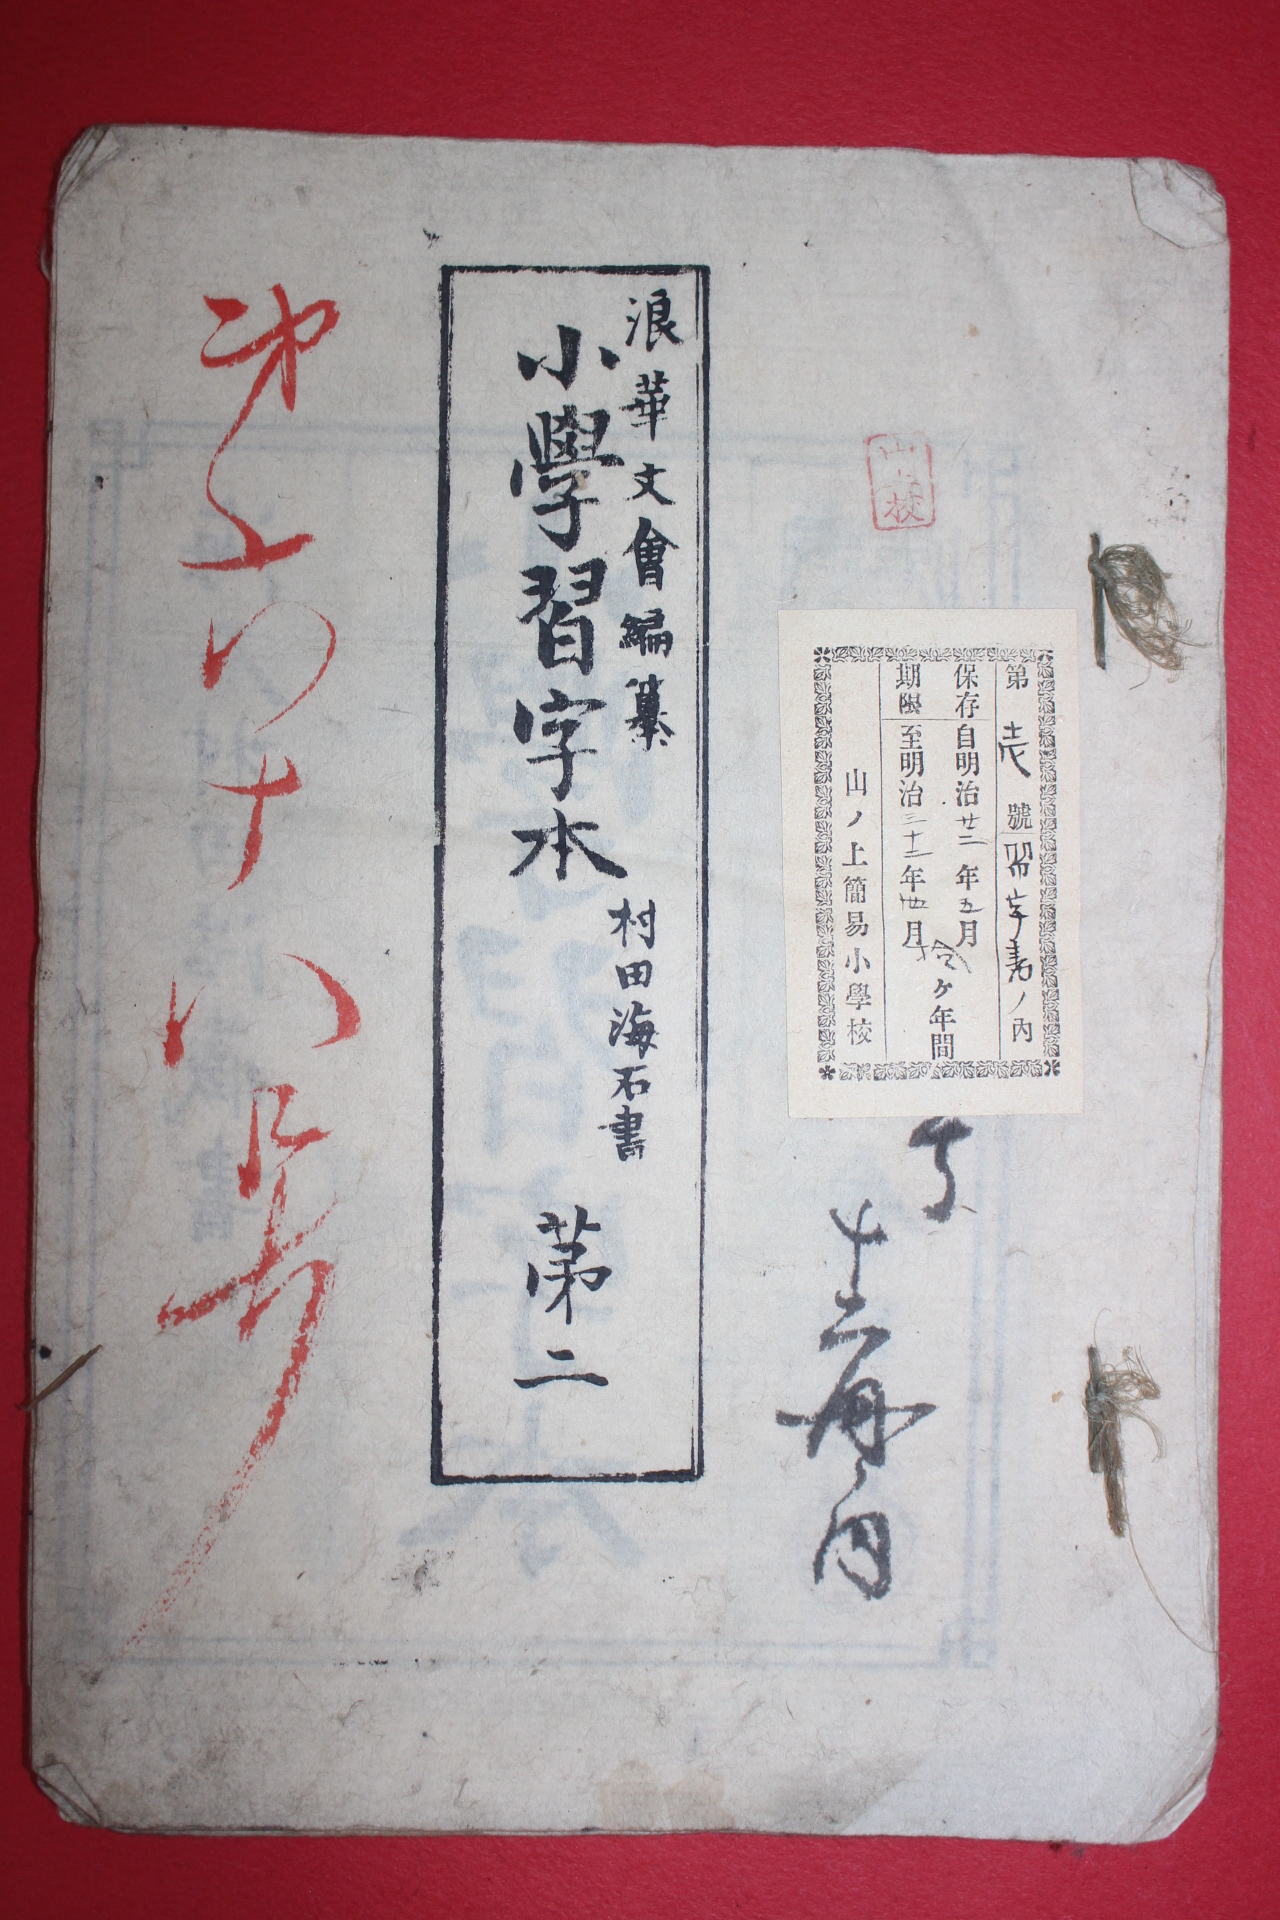 山上校
第壱號習字書ノ内
保存期限
自明治廿二年五月
至明治三十二年四月
拾ヶ年間
山ノ上簡易小學校
十二冊ノ内
浪華文會編纂
小學習字本
村田海石書
第二
第四十八号